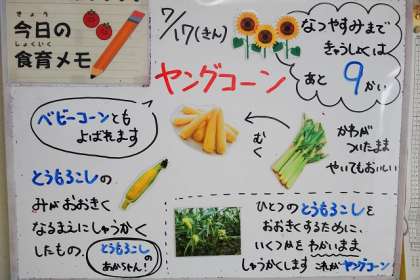 きょう
今日の
しょくいく
食育メモ
7/17(きん)
なつやすみまで
きゅうしょくは
あと 9かい
ヤングコーン
ベビーコーンとも
よばれます
むく
かわが
ついたまま
やいてもおいしい
とうもろこしの
みがおおきく
なるまえにしゅうかく
したもの。
とうもろこしの
あかちゃん!
ひとつのとうもろこしを
おおきくするために、
いくつかを わかいまま
しゅうかくします これがヤングコーン